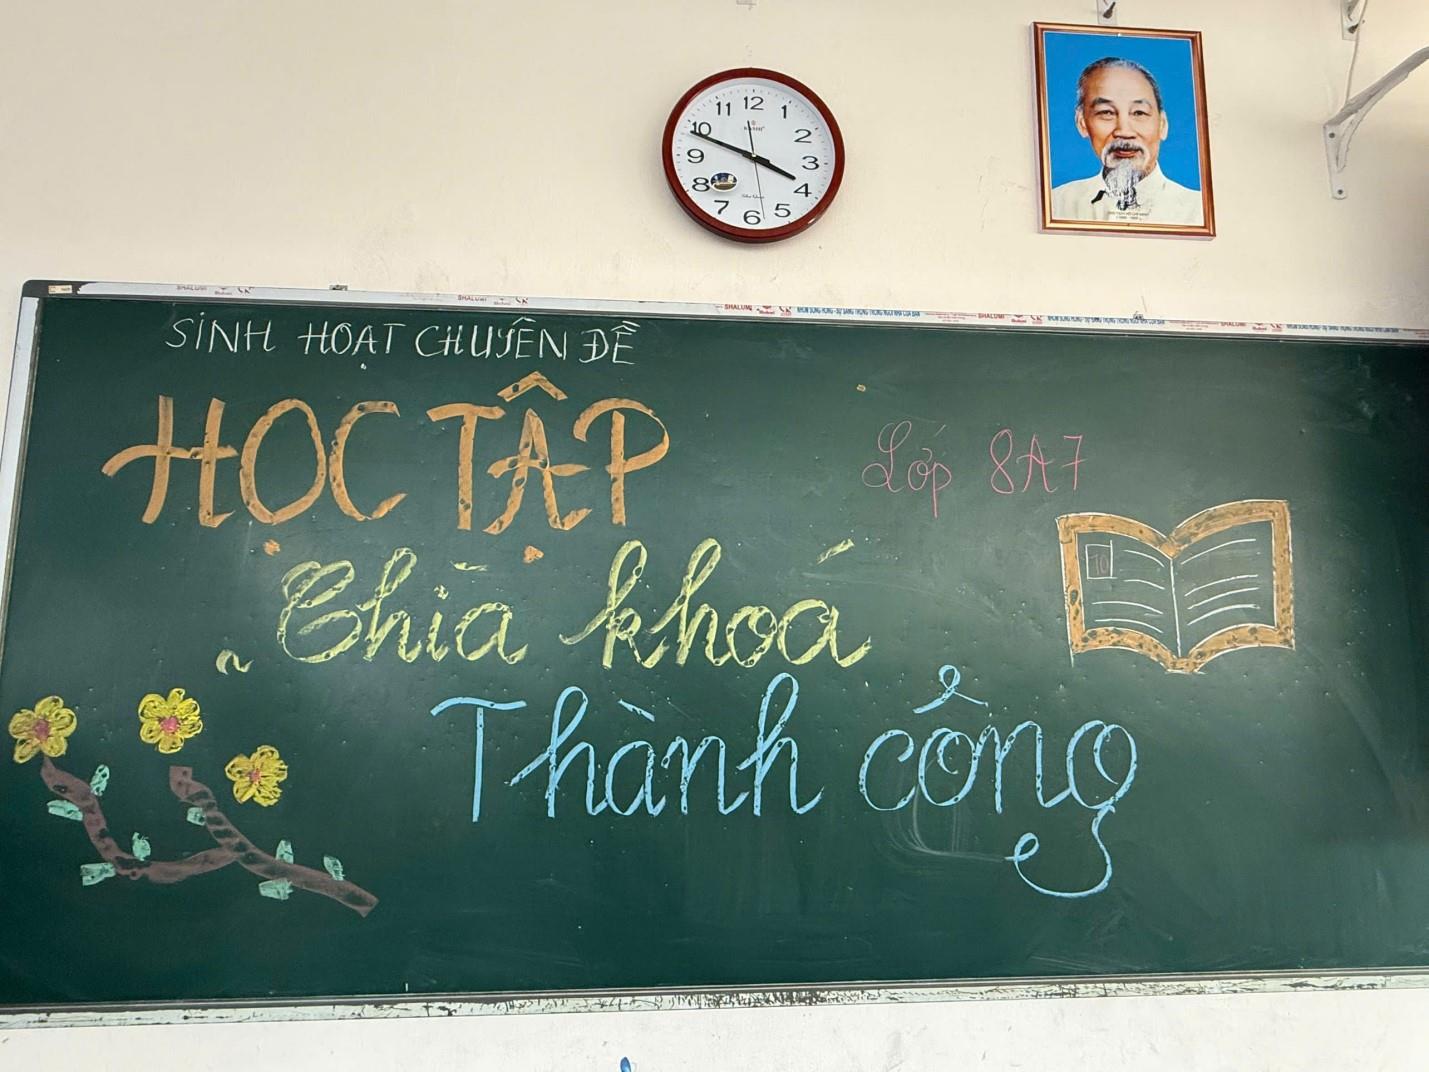 12
1
2
3
4
5
6
7
8
9
10
11
SINH HOẠT CHUYÊN ĐỀ
HỌC TẬP
Lớp 8A7
Chìa khoá
10
Thành công
SHALUMI
SHALUMI
SHALUMI
SHALUMI
SHALUMI